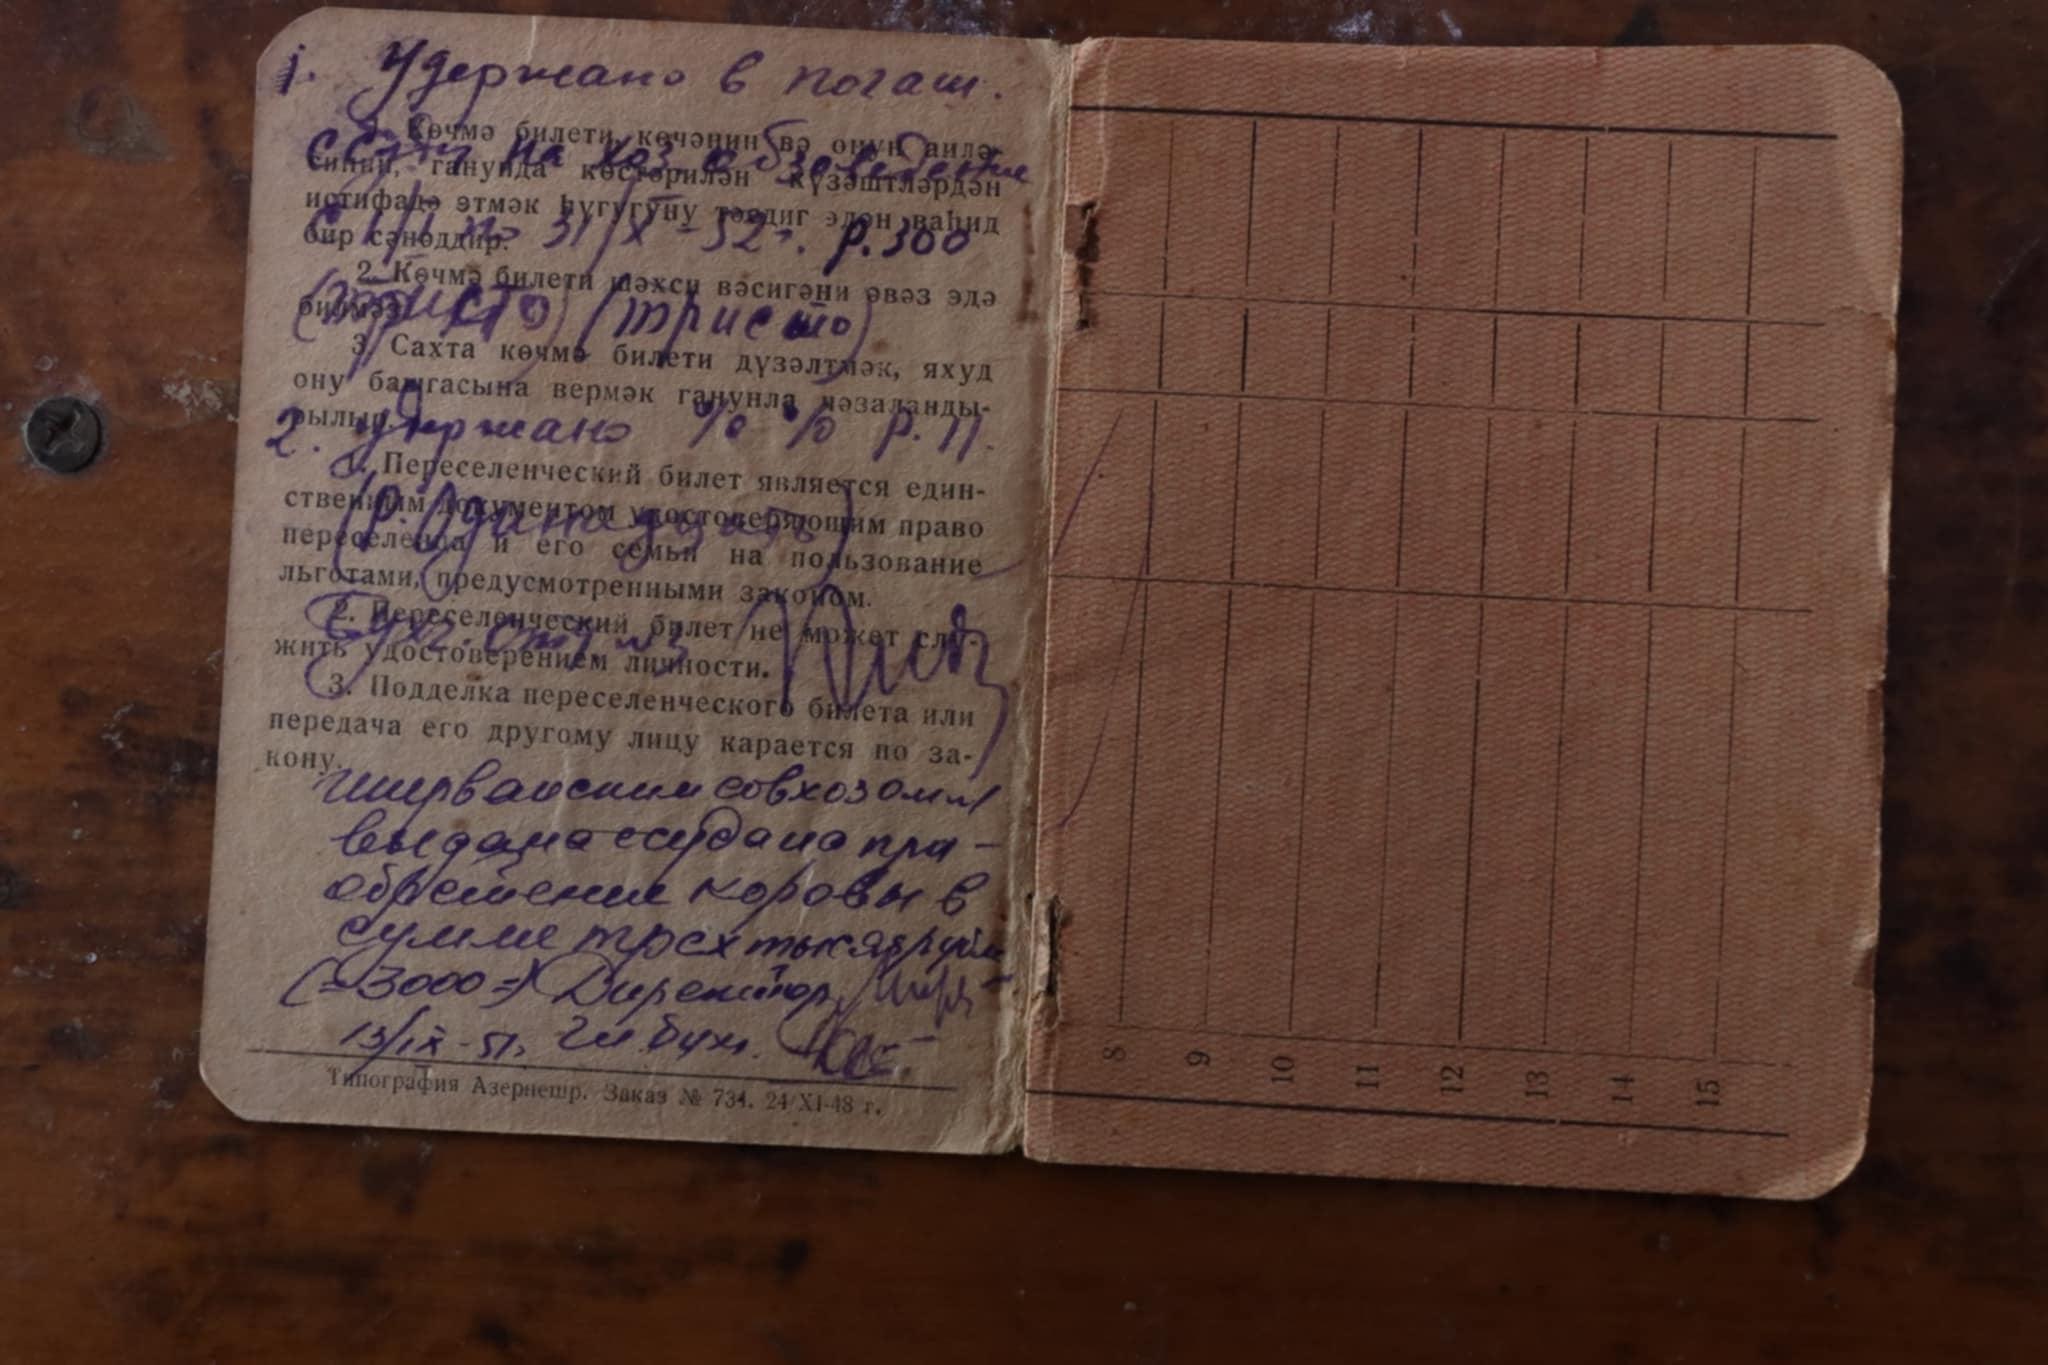 1. Удержано в погаш.
ссуды на хоз. обзаведение
с 1/I по 31/X-52г. р. 300
(триста) (триста)
2. удержано % % р. 11.
(р. Одинадцать)
Бухг.
1. Көчмә билети, көчәнин вә онун аилә-
синин, ганунда көстәрилән күзәштләрдән
истифадә этмәк һүгугуну тәсдиг эдән ваһид
бир сәнәддир.
2. Көчмә билети шәхси вәсигәни әвәз эдә
билмәз.
3. Сахта көчмә билети дүзәлтмәк, яхуд
ону башгасына вермәк ганунла чәзаланды-
рылыр.
1. Переселенческий билет является един-
ственным документом удостоверяющим право
переселенца и его семьи на пользование
льготами, предусмотренными законом.
2. Переселенческий билет не может слу-
жить удостоверением личности.
3. Подделка переселенческого билета или
передача его другому лицу карается по за-
кону.
Ширванским совхозом
выдана ссуда на при-
обретение коровы в
сумме трех тысяч рублей
(=3000=) Директор
13/IX-51г. Гл. бух.
Типография Азернешр. Заказ № 734. 24/XI-48 г.
8
9
10
11
12
13
14
15